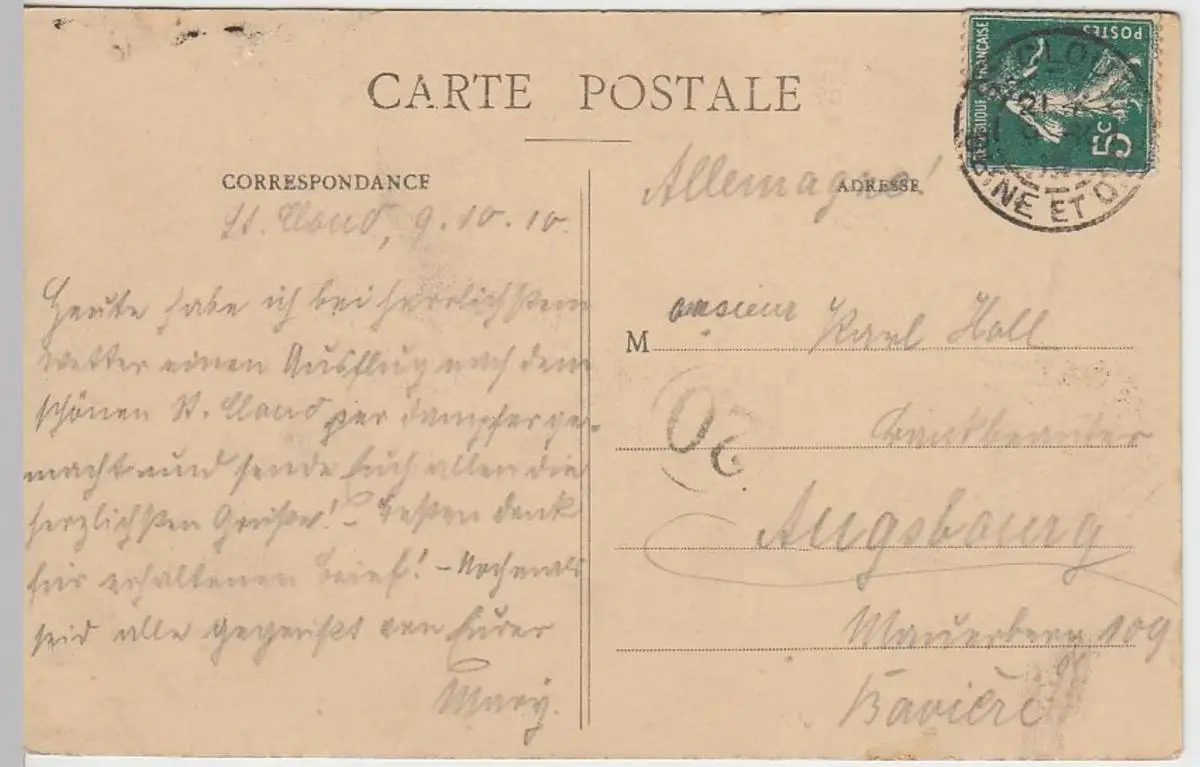 CARTE POSTALE
CORRESPONDANCE
St. Cloud, 9.10.10.
Heute habe ich bei herrlichstem
Wetter einen Ausflug nach dem
schönen St. Cloud per Dampfer ge-
macht und sende Euch allen die
herzlichsten Grüße! – Besten Dank
für erhaltenen Brief! – Nochmals
seid alle gegrüßt von Eurer
Mary.
ADRESSE
Allemagne!
Monsieur Karl Holl
Bankbeamter
Augsbourg
Mauerberg 109
Bavière
REPUBLIQUE FRANÇAISE
POSTES
5c
ST CLOUD
SEINE ET O